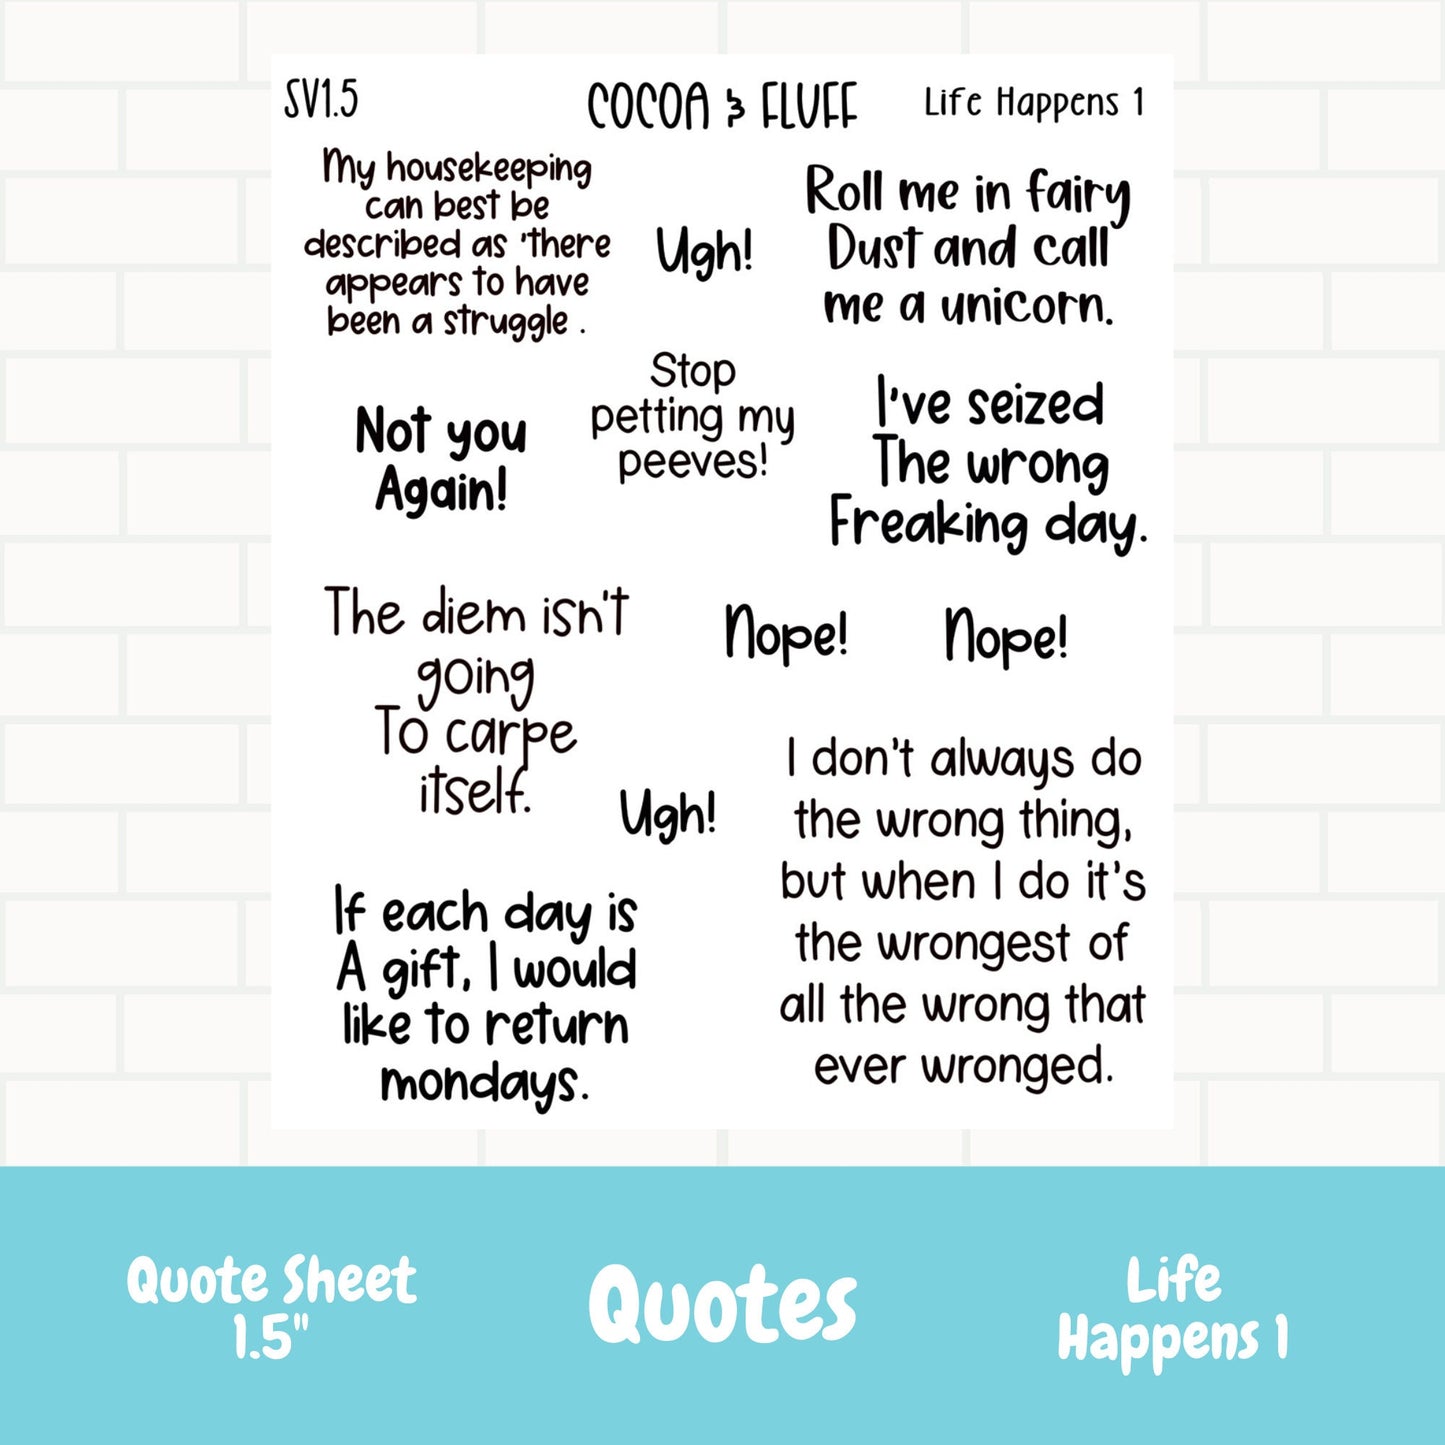 SV1.5
COCOA & FLUFF
Life Happens 1
My housekeeping
can best be
described as 'there
appears to have
been a struggle .
Ugh!
Roll me in fairy
Dust and call
me a unicorn.
Not you
Again!
Stop
petting my
peeves!
I've seized
The wrong
Freaking day.
The diem isn't
going
To carpe
itself.
Nope!
Nope!
Ugh!
I don't always do
the wrong thing,
but when I do it's
the wrongest of
all the wrong that
ever wronged.
If each day is
A gift, I would
like to return
mondays.
Quote Sheet
1.5"
Quotes
Life
Happens 1